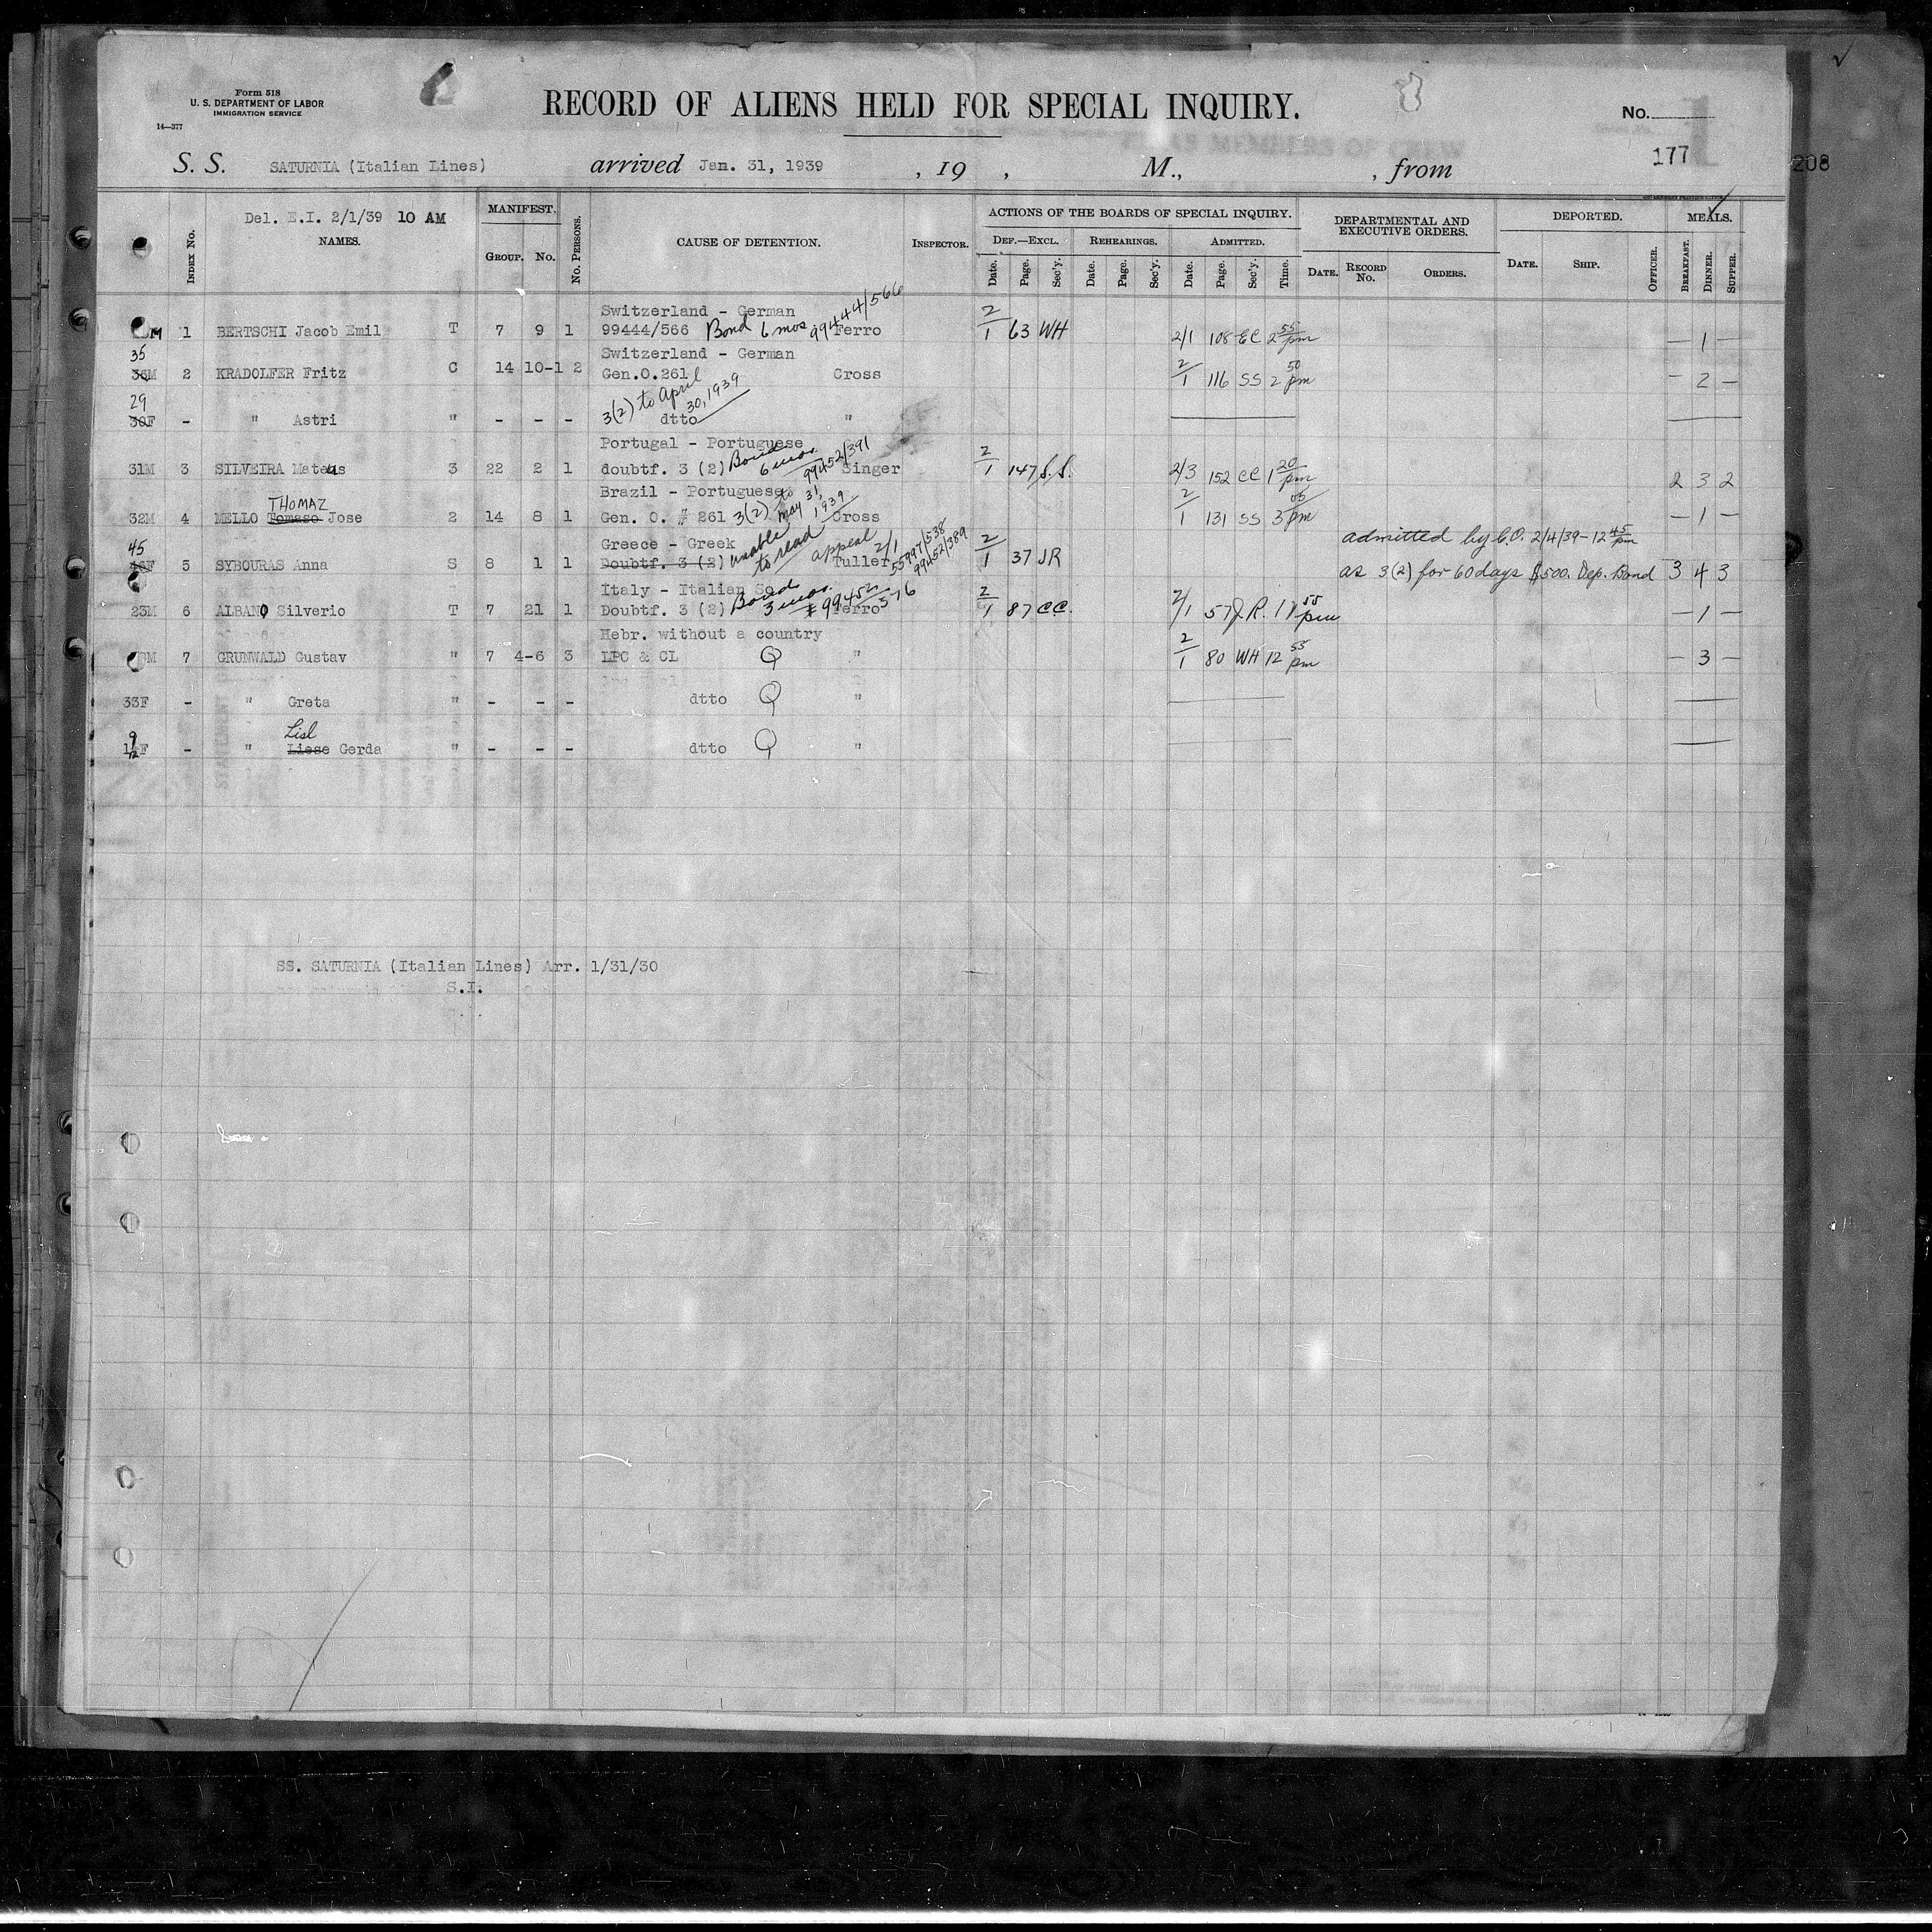 Form 518
U. S. DEPARTMENT OF LABOR
IMMIGRATION SERVICE
14—377
RECORD OF ALIENS HELD FOR SPECIAL INQUIRY.
No.
177
208
S. S. SATURNIA (Italian Lines) arrived Jan. 31, 1939 , 19 , M., , from
Del. E.I. 2/1/39 10 AM
INDEX No. NAMES. MANIFEST. GROUP. No. No. PERSONS. CAUSE OF DETENTION. INSPECTOR.
ACTIONS OF THE BOARDS OF SPECIAL INQUIRY.
DEF.—EXCL. REHEARINGS. ADMITTED.
Date. Page. Sec'y. Date. Page. Sec'y. Date. Page. Sec'y. Time.
DEPARTMENTAL AND EXECUTIVE ORDERS.
DATE. RECORD No. ORDERS.
DEPORTED.
DATE. SHIP. OFFICER.
MEALS.
BREAKFAST. DINNER. SUPPER.
Switzerland - German
M 1 BERTSCHI Jacob Emil T 7 9 1 99444/566 Bond 6 mos. 99444/566 Ferro 2/1 63 WH 2/1 108 CC 2 55 pm — 1 —
35
Switzerland - German
36M 2 KRADOLFER Fritz C 14 10-1 2 Gen.O.261 Cross 2/1 116 SS 2 50 pm — 2 —
3(2) to April 30, 1939
29
30F - " Astri " - - - dtto "
Portugal - Portuguese
31M 3 SILVEIRA Mateus 3 22 2 1 doubtf. 3 (2) Bond 6 mos 99452/391 Singer 2/1 147 S.S. 2/3 152 CC 1 20 pm 2 3 2
Brazil - Portuguese
THOMAZ
32M 4 MELLO Tomaso Jose 2 14 8 1 Gen. O. # 261 3(2) to May 31, 1939 Cross 2/1 131 SS 3 05 pm — 1 —
45
Greece - Greek
46F 5 SYBOURAS Anna S 8 1 1 Doubtf. 3 (2) unable to read appeal 2/1 55997/538 99452/389 Tuller 2/1 37 JR 3 4 3
admitted by C.O. 2/4/39 - 12 45 pm
as 3(2) for 60 days $500. Dep. Bond
Italy - Italian So.
23M 6 ALBANO Silverio T 7 21 1 Doubtf. 3 (2) Bond 3 mos. #99452/576 Ferro 2/1 87 CC. 2/1 57 J.R. 1 55 pm — 1 —
Hebr. without a country
M 7 GRUNWALD Gustav " 7 4-6 3 LPC & CL Q " 2/1 80 WH 12 55 pm — 3 —
33F - " Greta " - - - dtto Q "
9
Lisl
F - " Liese Gerda " - - - dtto Q "
12
SS. SATURNIA (Italian Lines) Arr. 1/31/30
S.I.